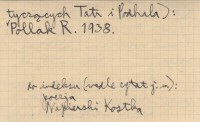 tyczących Tatr i Podhala):
Pollak R. 1938.
do indeksu (wedle cytat j.w.)
poezja
Napierski Kostka